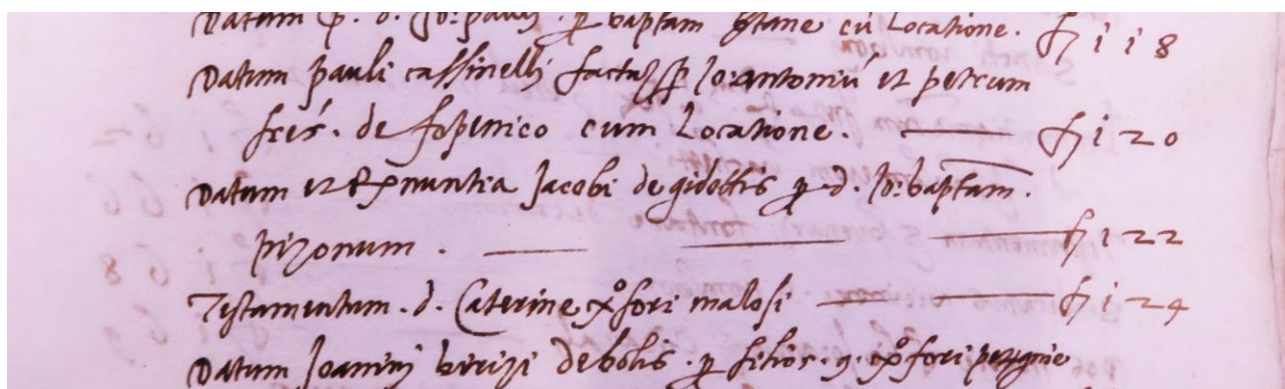 Datum p. d. Jo: pauli . p baptam cu Locatione . f 118
Datum pauli cassinelli factu p Jo: antoniu et petrum
fres . de fopenico cum Locatione . f 120
Datum et Rxnuntia Jacobi de gidottis p d. Jo: baptam .
pizonum . f 122
Testamentum . d . Caterine xpofori malosi f 124
Datum Joannini de botis . p filios . q . xpofori